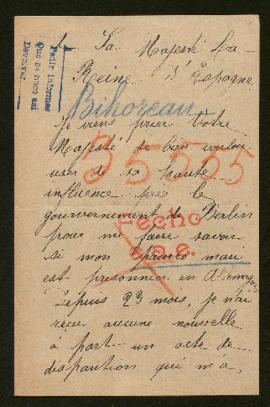 A Sa Majesté La
Reine d'Espagne
Pedir informes
Bihoreau
Je viens prier Votre
Majesté de bien vouloir
user de sa haute
35525
influence près le
gouvernement de Berlin
pour me faire savoir
fecho
si mon pauvre mari
est prisonnier en Allemagne
Depuis 23 mois, je n'ai
reçu aucune nouvelle
à part un acte de
disparition qui m'a